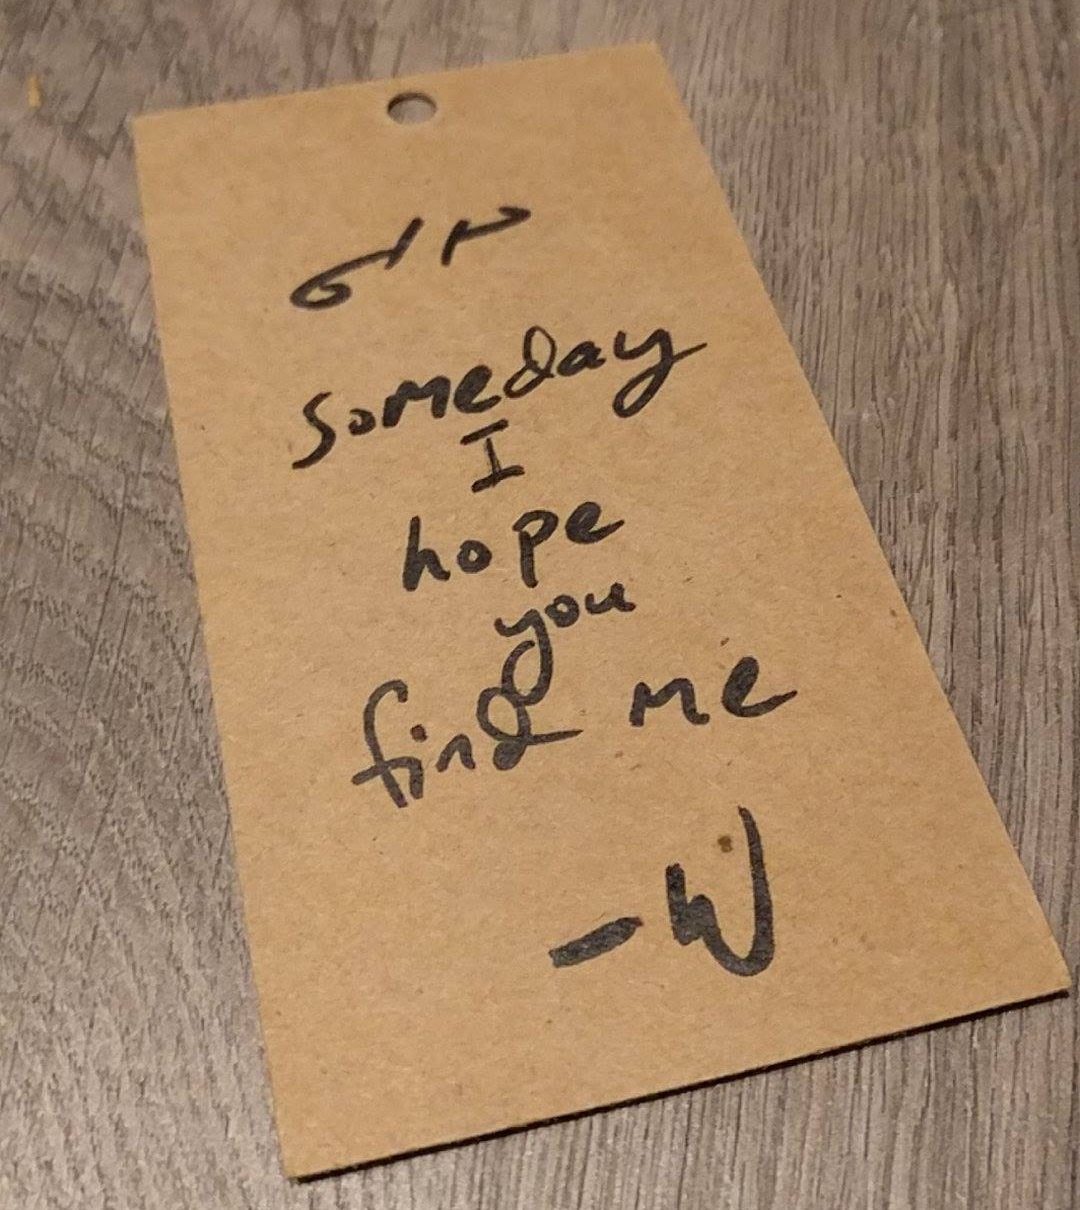 someday
I
hope
you
find me
-W